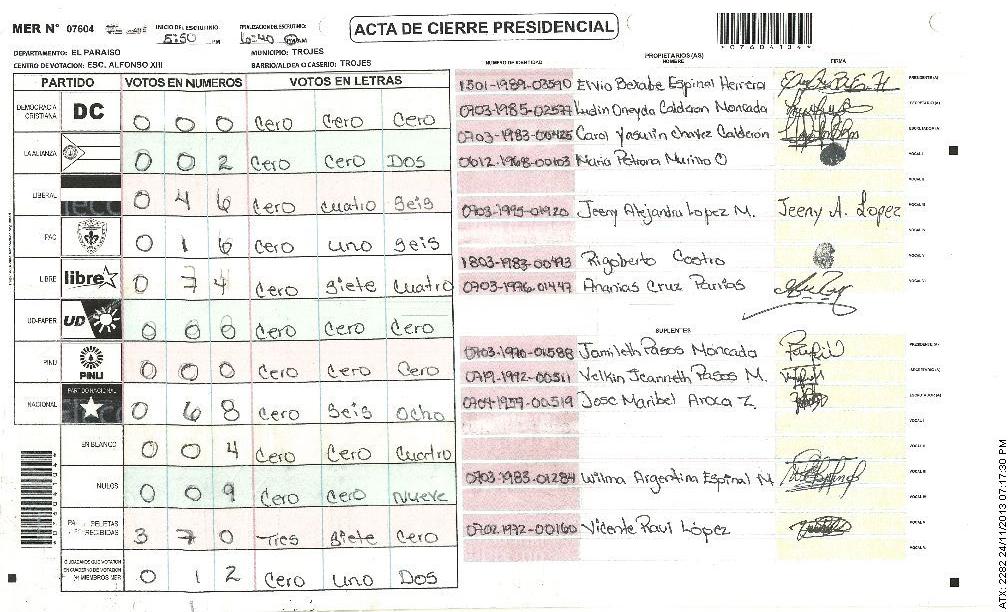 MER N° 07604
INICIO DEL ESCRUTINIO
5:50 PM
FINALIZACION DEL ESCRUTINIO:
6:40 PM
ACTA DE CIERRE PRESIDENCIAL
DEPARTAMENTO: EL PARAISO
MUNICIPIO: TROJES
CENTRO DE VOTACION: ESC. ALFONSO XIII
BARRIO/ALDEA O CASERIO: TROJES
PARTIDO VOTOS EN NUMEROS VOTOS EN LETRAS
DEMOCRACIA CRISTIANA DC 0 0 0 Cero Cero Cero
LA ALIANZA 0 0 2 Cero Cero Dos
LIBERAL 0 4 6 Cero cuatro Seis
PAC 0 1 6 Cero uno Seis
LIBRE libre 0 7 4 Cero Siete Cuatro
UD-FAPER UD 0 0 0 Cero Cero Cero
PINU PINU 0 0 0 Cero Cero Cero
NACIONAL PARTIDO NACIONAL 0 6 8 Cero Seis Ocho
EN BLANCO 0 0 4 Cero Cero Cuatro
NULOS 0 0 9 Cero Cero nueve
3 7 0 Tres Siete Cero
CIUDADANOS QUE VOTARON EN CUADERNO DE VOTACION (+) MIEMBROS MER 0 1 2 Cero uno Dos
PROPIETARIOS (AS)
NUMERO DE IDENTIDAD NOMBRE FIRMA
1501-1989-03590 Elvio Berabe Espinal Herrera PRESIDENTE (A)
0703-1985-02577 Ludin Oneyda Calderon Moncada SECRETARIO (A)
0703-1983-00425 Carol Yasuvin Chavez Calderon ESCRUTADOR (A)
0612-1968-00103 Maria Petrona Murillo O VOCAL I
VOCAL II
0703-1995-01920 Jeeny Alejandra Lopez M. Jeeny A. Lopez VOCAL III
VOCAL IV
1803-1983-00493 Rigoberto Castro VOCAL V
0703-1976-01447 Ananias Cruz VOCAL VI
SUPLENTES
0703-1990-01588 Jamileth Pasos Moncada PRESIDENTE (A)
0719-1992-00511 Velkin Jeanneth Pasos M. SECRETARIO (A)
0704-1959-00519 Jose Maribel Aroca Z. ESCRUTADOR (A)
VOCAL I
VOCAL II
0703-1983-01284 Wilma Argentina Espinal M VOCAL III
VOCAL IV
0702-1972-00160 Vicente Raul López VOCAL V
VOCAL VI
ATX: 2282 24/11/2013 07:17:30 PM